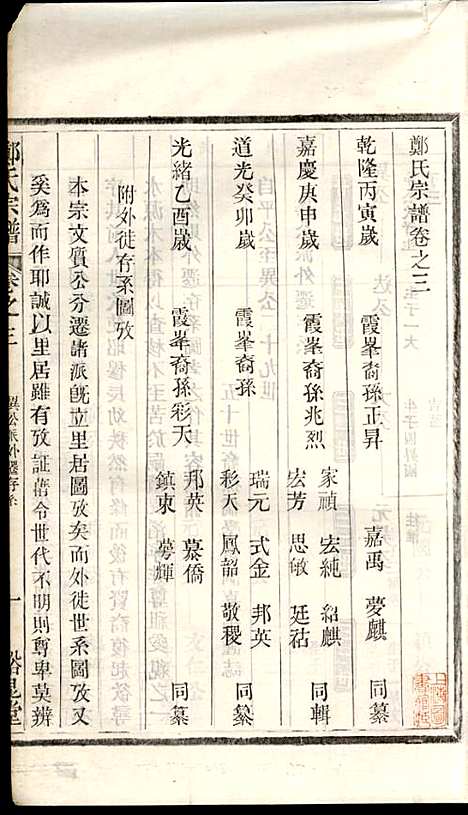 鄭氏宗譜卷之三
乾隆丙寅歲　霞峯裔孫正昇　嘉禹　夢麒　同纂
嘉慶庚申歲　霞峯裔孫兆烈　家禎　宏純　紹麒
宏芳　思敏　廷祜　同輯
道光癸卯歲　霞峯裔孫　瑞元　式金　邦英
彩天　鳳韶　敬稷　同纂
光緒乙酉歲　霞峯裔孫彩天　邦英　蔡僑
鎮東　夢輝　同纂
附外徙存系圖攷
本宗文質公分遷諸派旣立里居圖攷矣而外徙世系圖攷又
奚為而作耶誠以里居雖有攷証蒨令世代不明則尊卑莫辨
鄭氏宗譜　卷之三　異公派外遷存系　一